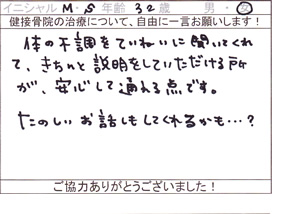 イニシャル M・S 年齢 32 歳 男・女
健接骨院の治療について、自由に一言お願いします！
体の不調をていねいに聞いてくれ
て、きちんと説明をしていただける所
が、安心して通える点です。
たのしいお話もしてくれるかも…？
ご協力ありがとうございました！